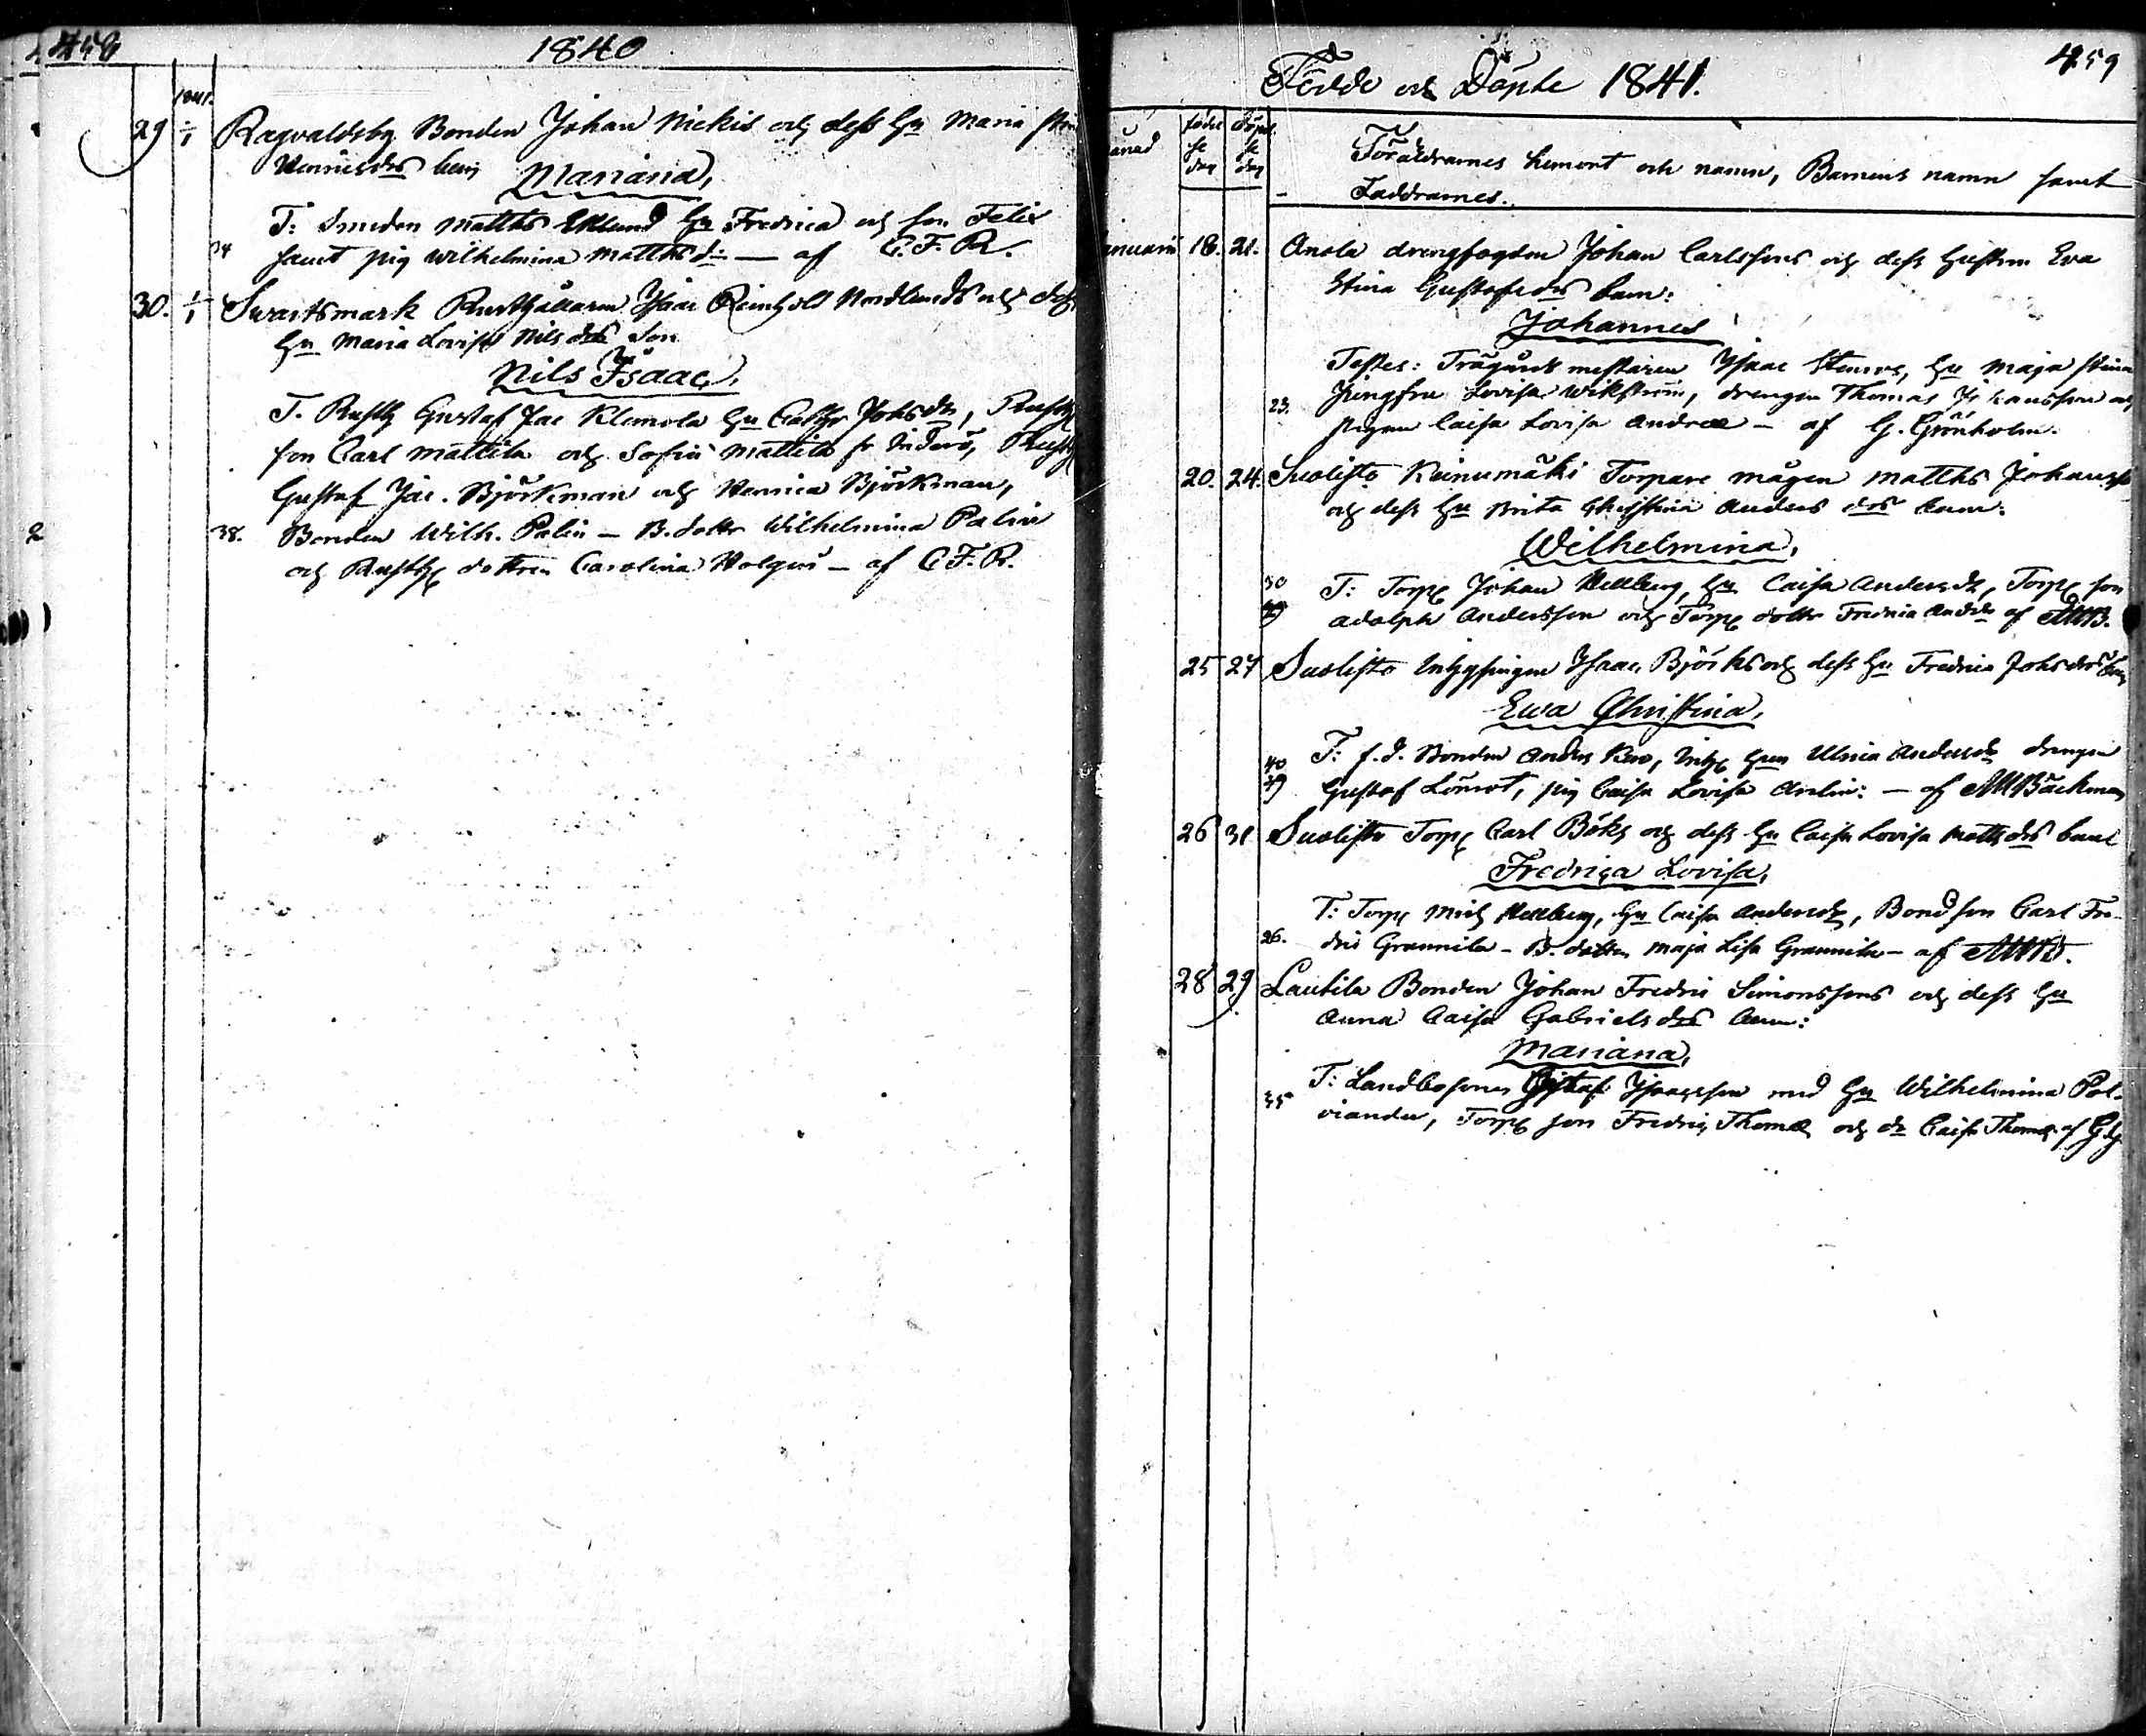 458
1840
1841.
29 1/1 Ragvaldsby Bonden Johan Nickis och dess hu Maria Stina
Henricsdrs barn
Mariana,
T: Smeden Matths Eklund hu Fredrica och son Felix
34 samt pig Wilhelmina Matthsdr — af C. F. R.
30. 1/1 Svartsmark Rusthållaren Isaac Reinhold Nordlunds och dess
hu Maria Lovisa Nilsdrs Son
Nils Isaac,
T. Rusth Gustaf Jac Klemola hu Johsdr, Rusth
son Carl Mattila och Sofia Mattila fr Inderö, Rusth
Gustaf Jac. Björkman och Henrica Björkman,
38. Bonden Wilh. Palin — B. dottr Wilhelmina Palin
och Rusth dottren Carolina — af C. F. R.
459
Födde och Döpte 1841.
Månad födel se dag döpel se dag
Föräldrarnes hemort och namn, Barnens namn samt
Faddrarnes.
Januarii 18. 21. Anola drengfogden Johan Carlssons och dess hustru Eva
Stina Gustafsdrs barn:
Johannes
Testes: Trägårds mästaren Isaac Stenroos, hu Maja Stina
Jungfru Lovisa Wikström, drengen Thomas Johansson och
23. pigan Caisa Lovisa Andrae — af G. Grönholm.
20. 24. Suolisto Keinumäki Torpare mågen Matths Johansson
och dess hu Brita Christina Andersdrs barn:
Wilhelmina,
30 T: Torp Johan Hellberg, hu Caisa Andersdr, Torp son
Adolph Andersson och Torp dottr Fredrica Andrsdr af AMB.
25 27 Suolisto Inhysingen Isaac Björks och dess hu Fredrica Johsdrs barn
Ewa Christina,
40 T: f.d. Bonden Anders, Inh hun Ulrica Andersdr drengen
Gustaf Lönrot, pig Caisa Lovisa: — af AM Bäckman
26 31 Suolisto Torp Carl Böks och dess hu Caisa Lovisa Mattsdrs barn
Fredrica Lovisa,
T: Torp Mich Hellberg, hu Caisa Andersdr, Bond son Carl Fre-
26. dric Grannila — B. dottren Maja Lisa Grannila — af AMB.
28 29 Lautila Bonden Johan Fredric Simonssons och dess hu
Anna Caisa Gabrielsdrs barn:
Mariana,
35 T: Landbosonen Gustaf Isaacsson med hu Wilhelmina Pol-
viander, Torp son Fredric Thomae och dr Caisa Thomae af